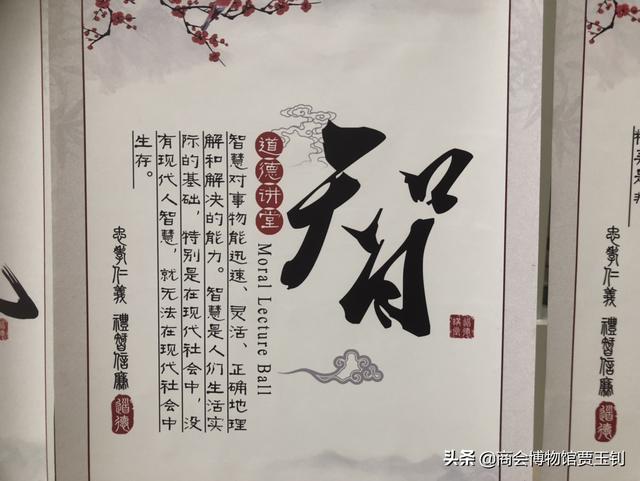 智
道德讲堂
Moral Lecture Ball
智慧对事物能迅速、灵活、正确地理
解和解决的能力。智慧是人们生活实
际的基础，特别是在现代社会中，没
有现代人智慧，就无法在现代社会中
生存。
忠孝仁義 禮智信廉
道德
忠孝仁義 禮智信廉
道德
头条 @商会博物馆贾玉钊